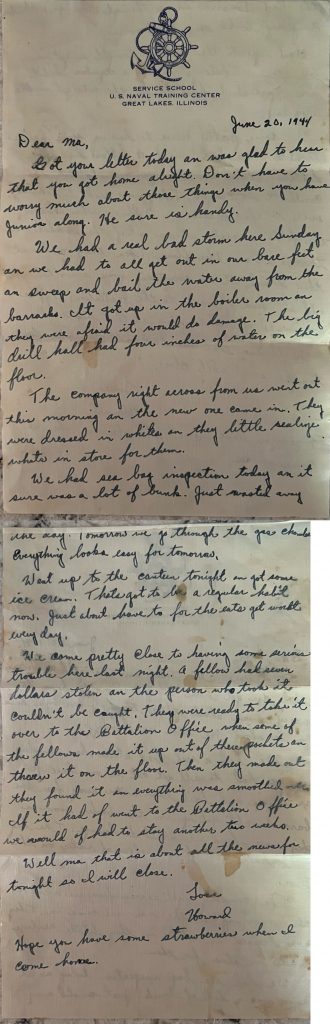 SERVICE SCHOOL
U. S. NAVAL TRAINING CENTER
GREAT LAKES, ILLINOIS
June 20, 1944
Dear Ma,
Got your letter today an was glad to hear
that you got home alright. Don't have to
worry much about those things when you have
Junior along. He sure is handy.
We had a real bad storm here Sunday
an we had to all get out in our bare feet
an sweep and bail the water away from the
barracks. It got up in the boiler room an
they were afraid it would do damage. The big
drill hall had four inches of water on the
floor.
The company right across from us went out
this morning an the new one came in. They
were dressed in whites an they little realize
whats in store for them.
We had sea bag inspection today an it
sure was a lot of bunk. Just wasted away
the day. Tomorrow we go through the gas chamber
Everything looks easy for tomorrow.
Went up to the canteen tonight an got some
ice cream. Thats got to be a regular habit
now. Just about have to for the eats get worst
every day.
We come pretty close to having some serious
trouble here last night. A fellow had seven
dollars stolen an the person who took it
couldn't be caught. They were ready to take it
over to the Battalion Office when some of
the fellows made it up out of there pockets an
threw it on the floor. Then they made out
they found it an everything was smoothed
If it had of went to the Battalion Office
we would of had to stay another two weeks.
Well ma that is about all the news for
tonight so I will close.
Love
Howard
Hope you have some strawberries when I
come home.